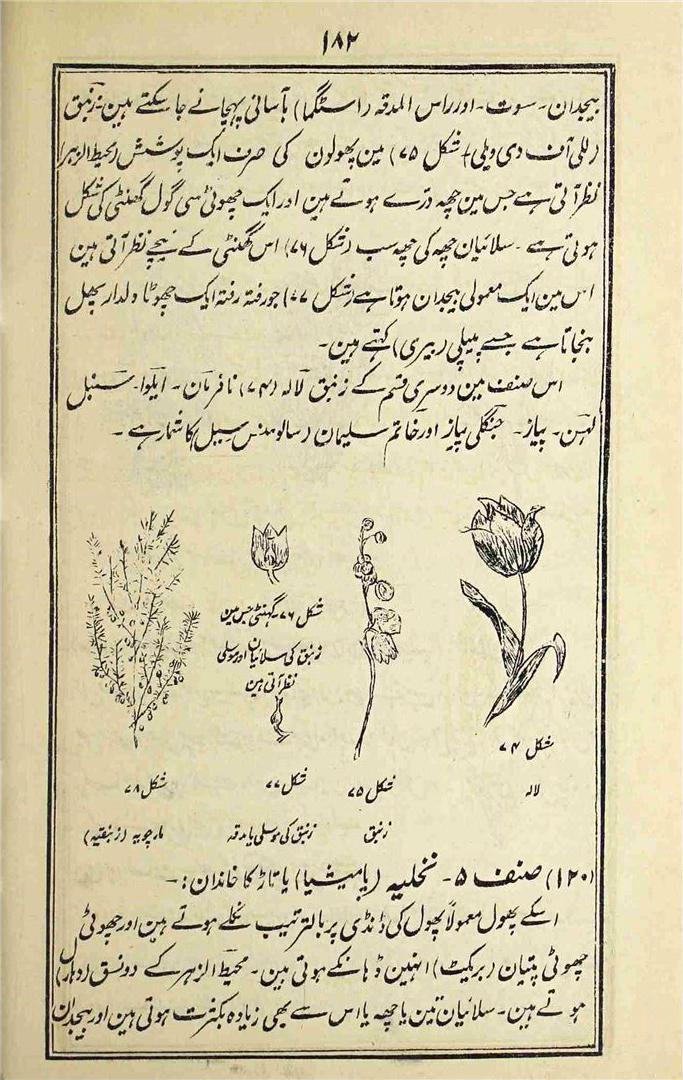 ۱۸۲
بیجدان۔ سوت۔ اور راس المدقہ (اسٹگما) بآسانی پہچانے جا سکتے ہین۔ زنبق
(للی آف دی ویلی) (شکل ۷۵) مین پھولون کی صرف ایک پوشش (محیط الزہر)
نظر آتی ہے جس مین چھہ درّے ہوتے ہین اور ایک چھوٹی سی گول گھنٹی کی شکل
ہوتی ہے۔ سلائیان چھہ کی چھہ سب (شکل ۷۶) اس گھنٹی کے نیچے نظر آتی ہین
اس مین ایک معمولی بیجدان ہوتا ہے (شکل ۷۷) جو رفتہ رفتہ ایک چھوٹا ولدار پھل
بنجاتا ہے جسے پیلی (بیری) کہتے ہین۔
اس صنف مین دوسری قسم کے زنبق لالہ (۷۴) نافرمان۔ ایلوا۔ سنبل
لہسن۔ پیاز۔ جنگلی پیاز اور خاتم سلیمان (سالومنس سیل) کا شمار ہے۔
شکل ۷۶۔ گہنٹی جس مین
زنبق کی سلائیان اور موسلی
نظر آتی ہین
شکل ۷۴
لالہ
شکل ۷۵
زنبق
شکل ۷۷
زنبق کی موسلی یا مدقہ
شکل ۷۸
مارچوبہ (زنبقیہ)
(۱۲۰) صنف ۵۔ نخلیہ (پامیشیا) یا تاڑ کا خاندان:۔
اسکے پھول معمولاً پھول کی ڈنڈی پر بالترتیب نکلے ہوتے ہین اور چھوٹی
چھوٹی پتیان (بریکٹ) انہین ڈہانکے ہوتی ہین۔ محیط الزہر کے دو نسق (دہار)
ہوتے ہین۔ سلائیان تین یا چھہ یا اس سے بھی زیادہ بکثرت ہوتی ہین اور بیجدان